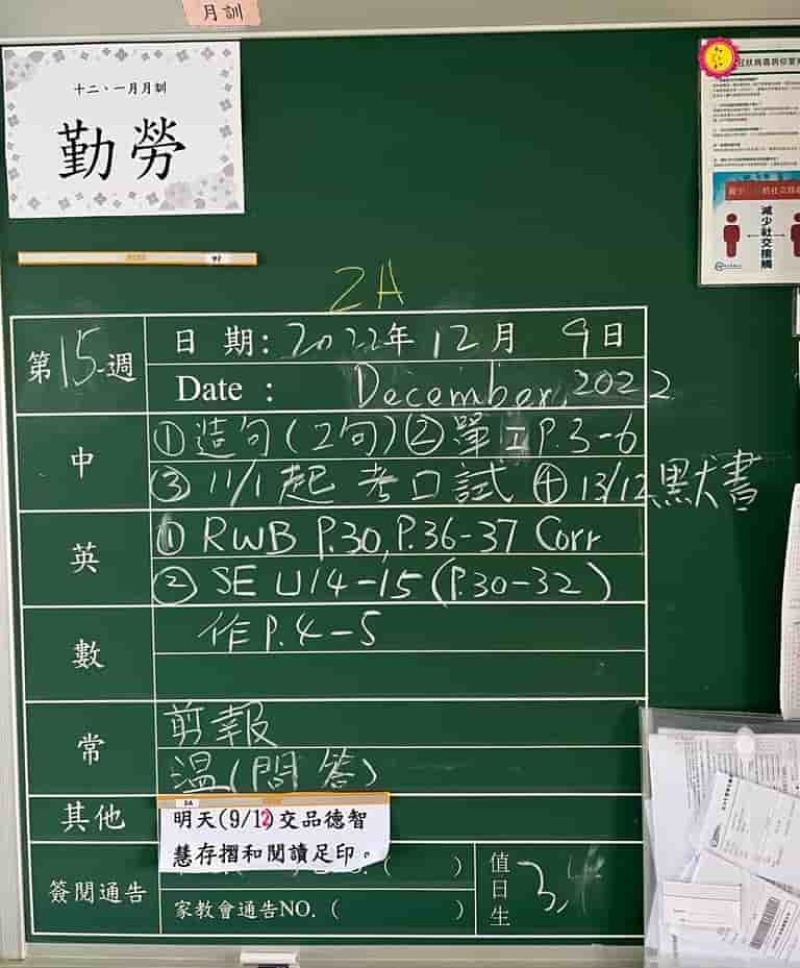 月訓
十二、一月月訓
勤勞
減少社交接觸
2A
第15週
日 期: 2022年 12月 9日
Date : December, 2022
中
①造句(2句)②單 P.3-6
③11/1起 考口試 ④13/12默書
英
① RWB P.30, P.36-37 Corr
② SE U14-15 (P.30-32)
數
作P.4-5
常
剪報
溫(問答)
其他
明天(9/12)交品德智
慧存摺和閱讀足印。
簽閱通告
( )
家教會通告NO. ( )
值日生
3,4